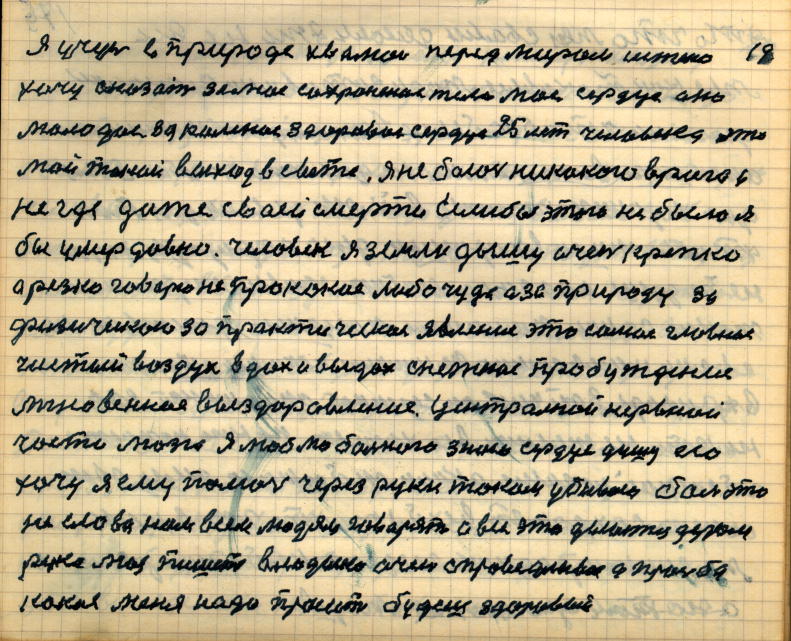 Я учув в природе хвамои перед миром истено 19
хочу сказат за мое сохраненое тело мое сердце оно
молодое за каленое здоровое сердце 25 лет человека это
мой такой выход в свете. Я не боюсь никакого врага и
не где даже своей смерти если бы этого не было я
бы умер давно. Человек я земли дышу очен крепко
а резко говорю не про какое либо чуда а за природу за
физическою за практическое явление это самое главное
чистый воздух вдох и выдох снежное пробуждение
мгновенное выздоровление. Централной нервной
части мозга Я люблю болного знаю сердце душу его
хочу я ему помоч через руки током убиваю бол это
не слова нам всем людям говорят а все это делаетца делом
рука моя пишет владыко очен справедливое а просба
какая меня надо просит будеш здоровый